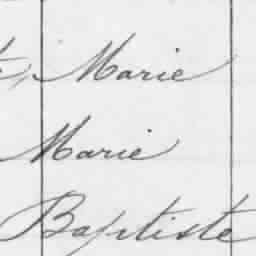 Marie
Marie
Baptiste